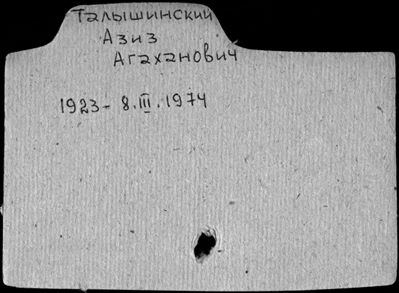 Талышинский
Азиз
Агаханович
1923 - 8.III.1974